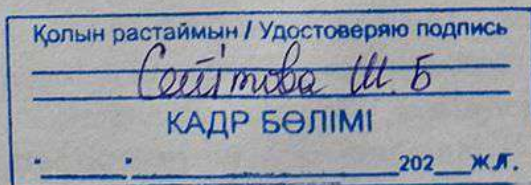 Қолын растаймын / Удостоверяю подпись
Сейітова Ш. Б
КАДР БӨЛІМІ
"___"__________202___ж./г.